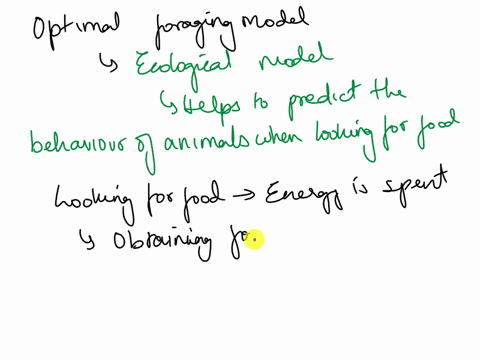 Optimal foraging model
↳ Ecological model
↳ Helps to predict the
behaviour of animals when looking for food
Looking for food → Energy is spent
↳ Obtaining fo